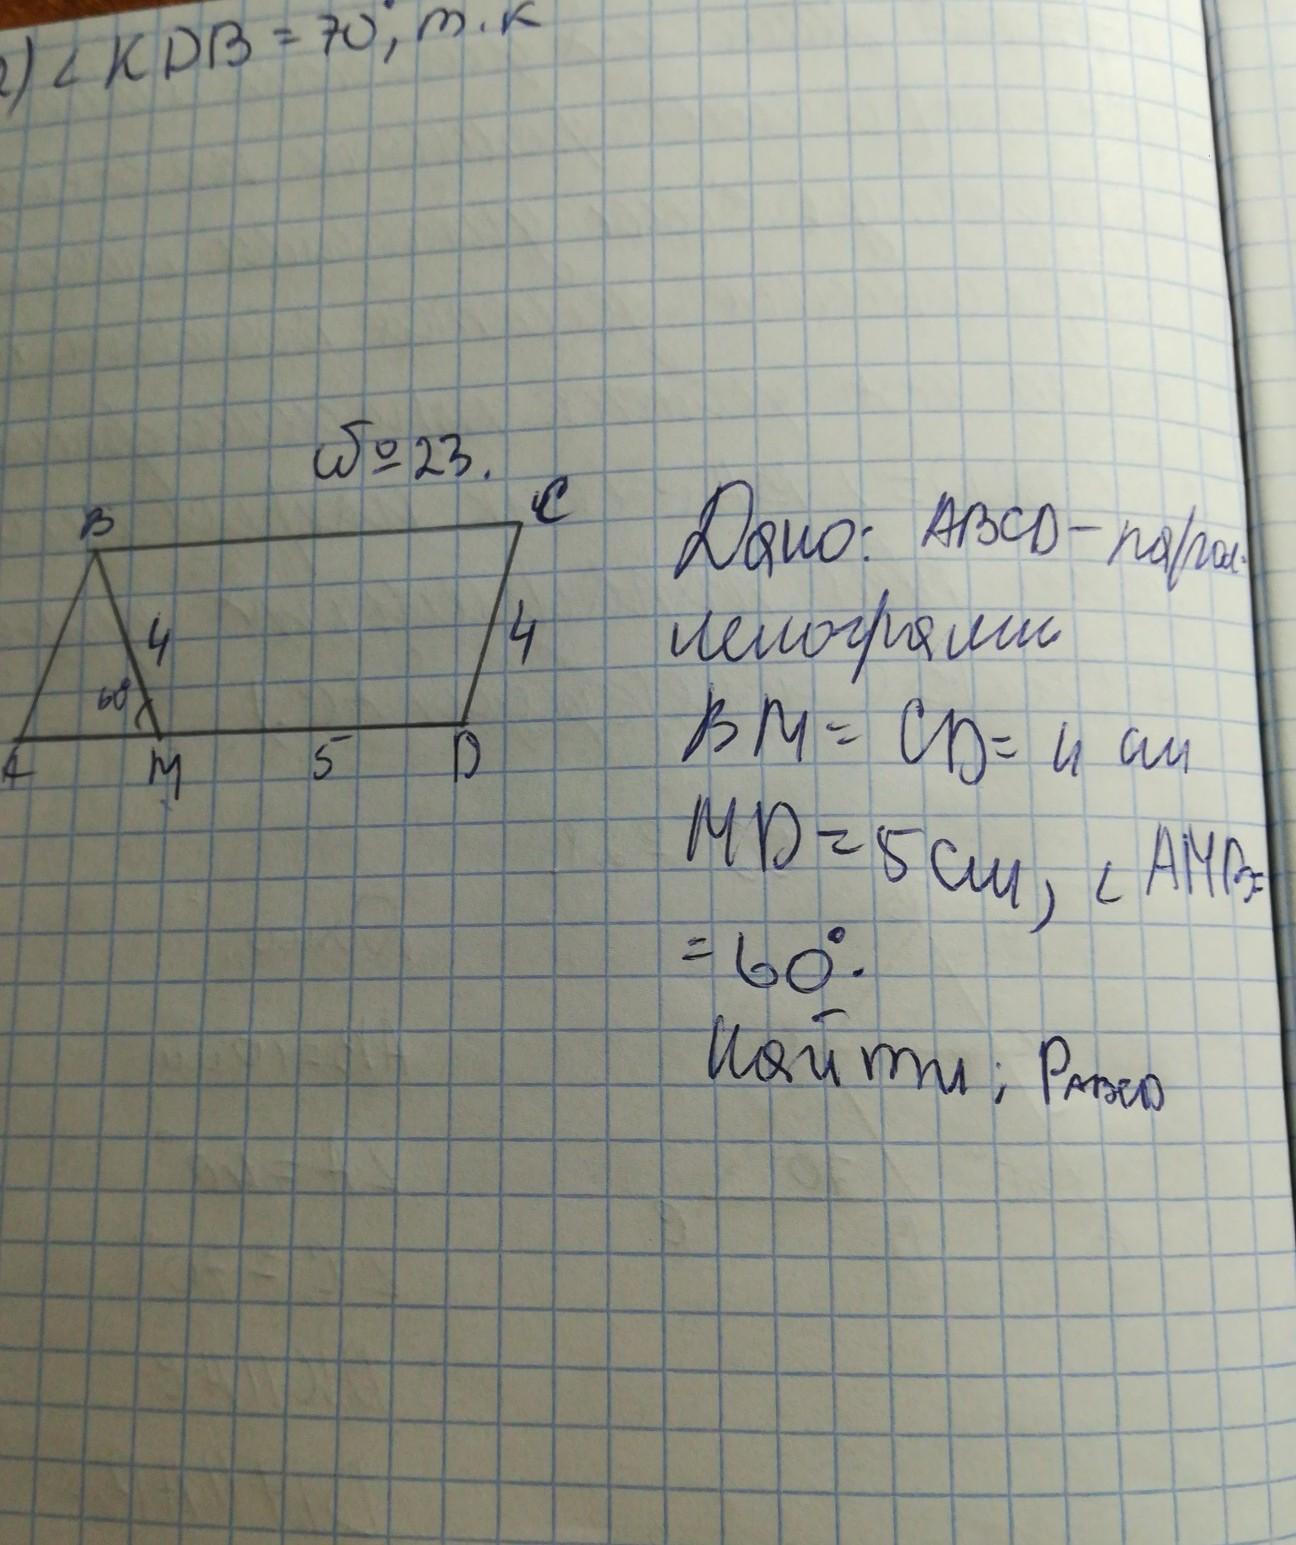 2) ∠KDB = 70°, т.к
№23.
B
C
4
4
60°
A
M
5
D
Дано: ABCD - парал-
лелограмм
BM = CD = 4 см
MD = 5 см, ∠AMB=
= 60°.
Найти: PABCD